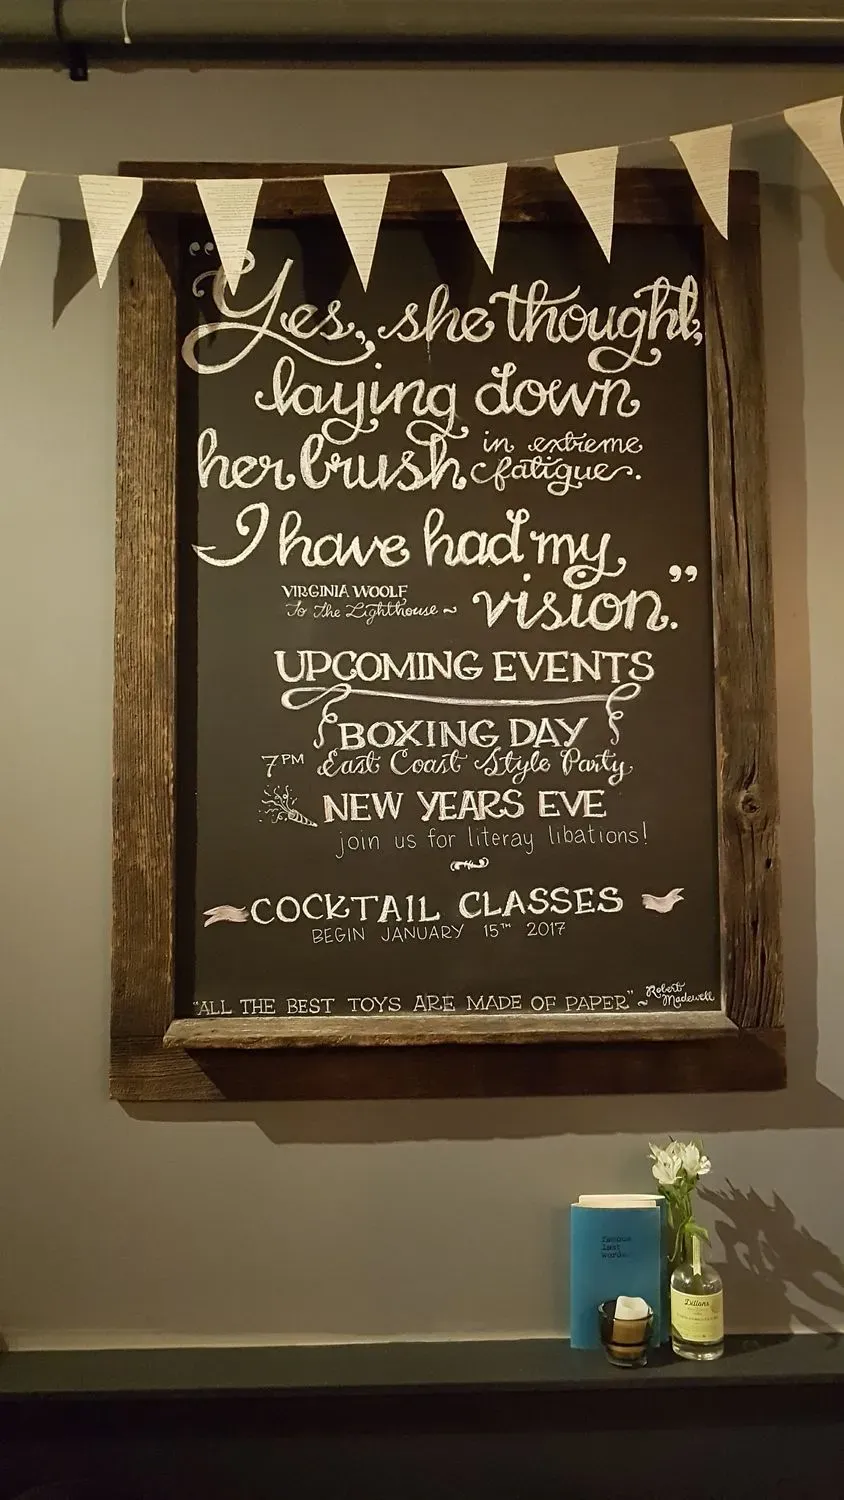 "Yes, she thought,
laying down
her brush in extreme
fatigue.
I have had my
vision."
VIRGINIA WOOLF
To The Lighthouse ~
UPCOMING EVENTS
BOXING DAY
7PM East Coast Style Party
NEW YEARS EVE
join us for literay libations!
COCKTAIL CLASSES
BEGIN JANUARY 15TH 2017
"ALL THE BEST TOYS ARE MADE OF PAPER" ~ Robert
Madewell
famous
last
words
Dillon's